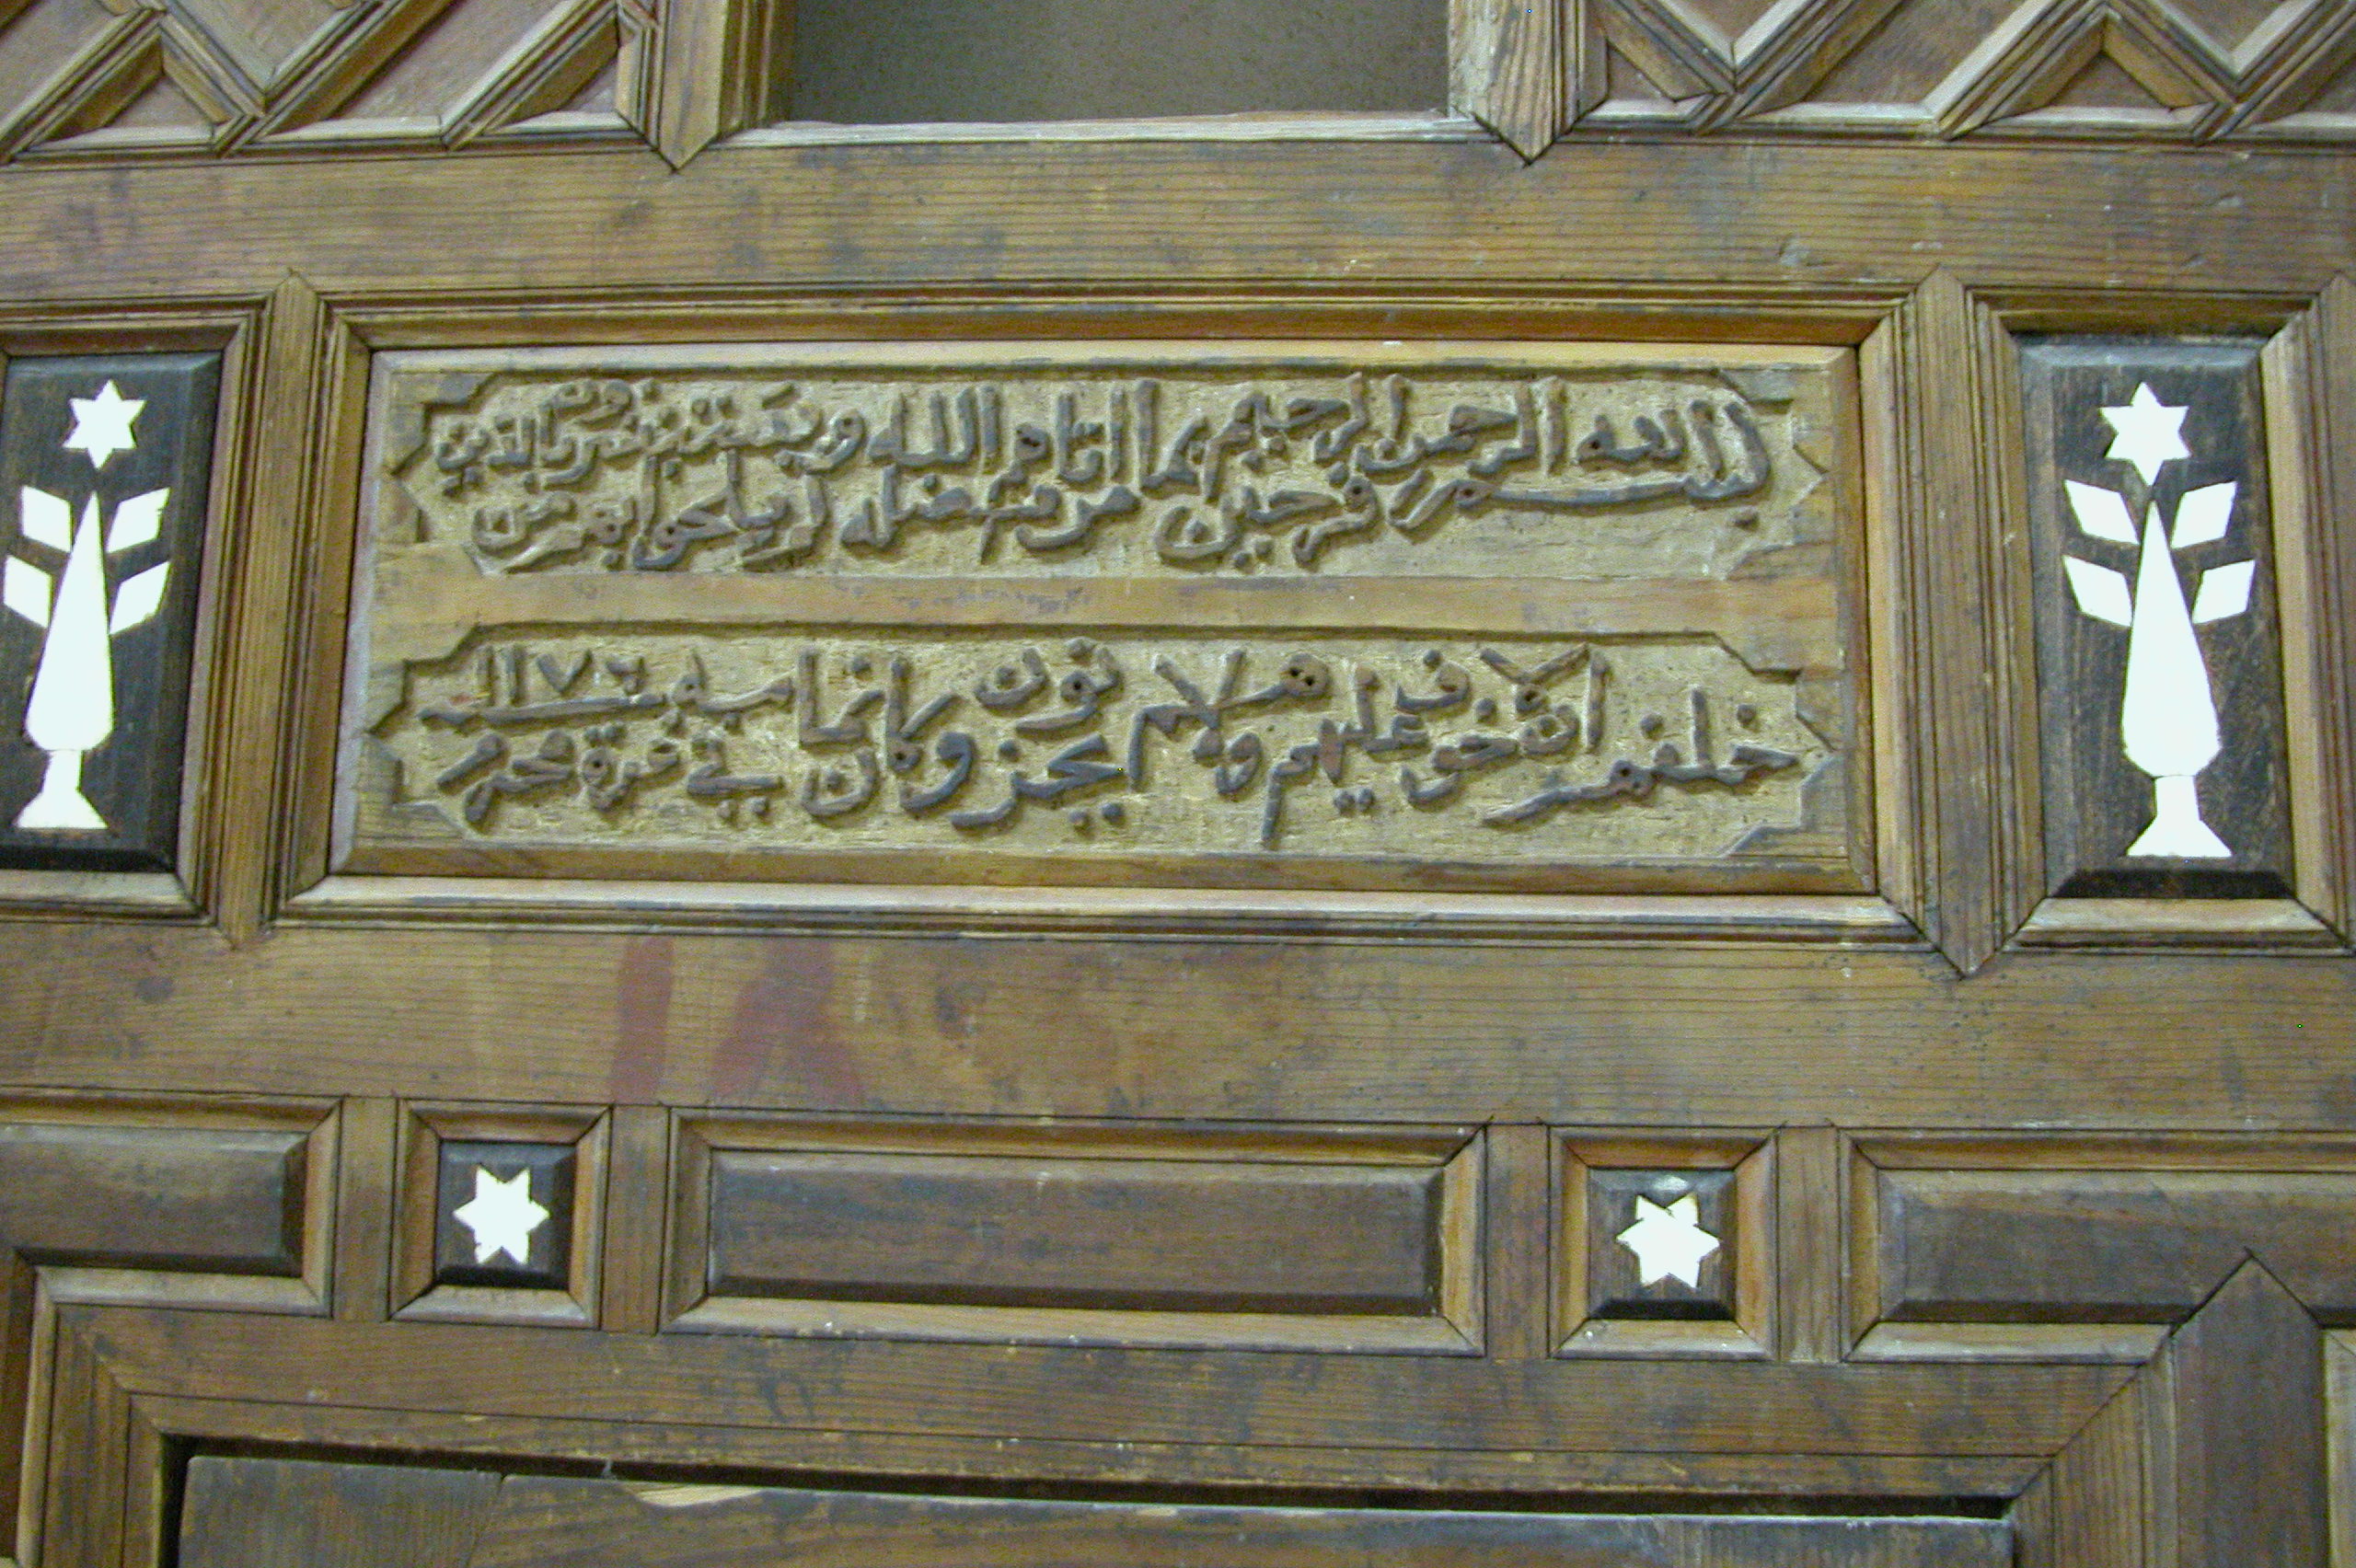 بسم الله الرحمن الرحيم فرحين بما اتاهم الله من فضله ويستبشرون بالذين لم يلحقوا بهم من
خلفهم ان لا خوف عليهم ولا هم يحزنون وكان اتمامه في غرة محرم سنة ١١٧٦
١٨